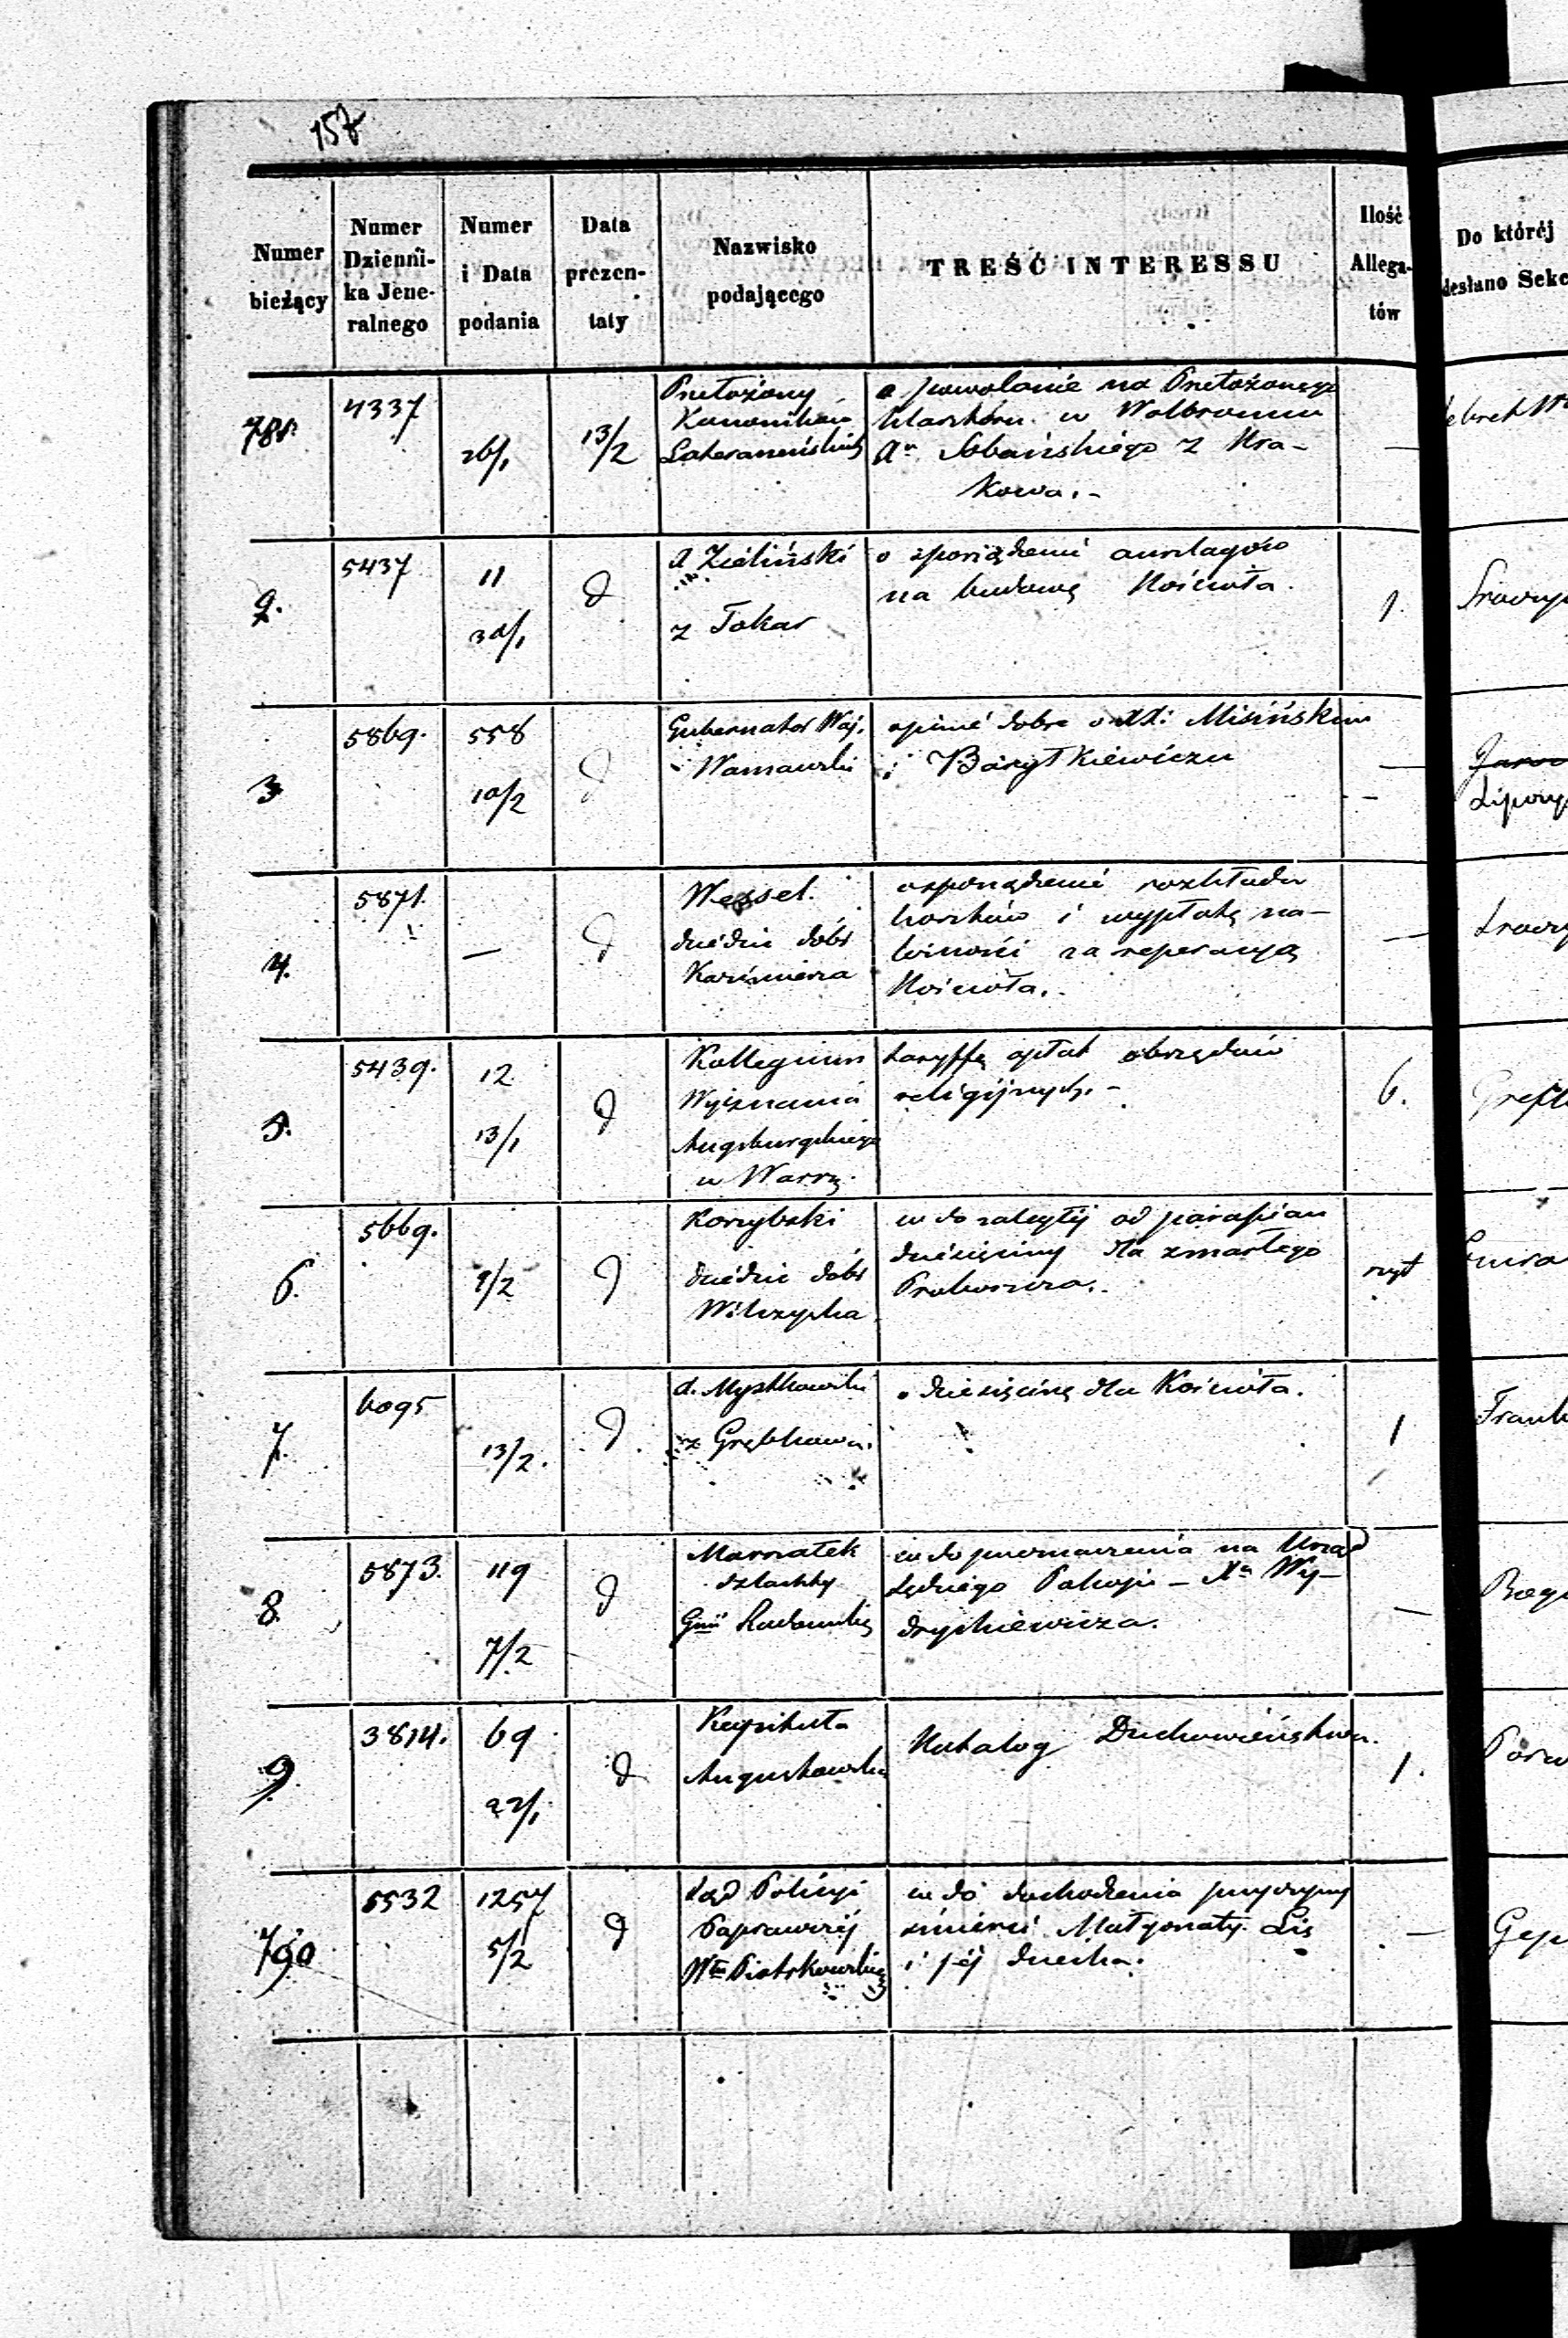 157
Numer bieżący
Numer Dzienni-ka Jene-ralnego
Numer i Data podania
Data prezen-taty
Nazwisko podającego
TREŚĆ INTERESSU
Ilość Allega-tów
Do której
desłano Sekc
781.
4337
26/1
13/2
Przełożony
Kanoników
Lateraneńskich
o powołanie na Przełożonego
klasztoru w Wolbromiu
Xa Sobańskiego z Kra-
kowa.-
—
2.
5437
11
30/1
d
X Zieliński
z Tokar
o zporządzenie anszlagów
na budowę Kościoła.
1.
3
5869.
558
10/2
d
Gubernator Woj.
Warszawski
opinie dobre o XX: Misińskim
i Baryłkiewiczu
—
4.
5871.
—
d
Wessel.
dziedzic dóbr
Kazimierza
o zporządzenie rozkładu
kosztów i wypłatę na-
leżności za reperacyą
Kościoła.-
—
5.
5439.
12
13/1
d
Kollegium
Wyznania
Augsburgskiego
w Warsz.
taryffę opłat obrzędów
religijnych.-
6.
6.
5669.
9/2
d
Korzybski
dziedzic dóbr
Wilczyska
w do zaległej od parafian
dziesięciny dla zmarłego
Proboszcza.-
7.
6095
13/2.
d
X. Mystkowski
z Grębkowa.
o dziesięcinę dla Kościoła.
1
8.
5873.
119
7/2
d
Marszałek
szlachty
Gnii Radomskiej
w do przeznaczenia na Urząd
Sędziego Pokoju — Xa Wy-
drychiewicza.
—
9.
3814.
69
22/1
d
Kapituła
Augustowska
Katalog Duchowieństwa.
1.
790
5532
1257
5/2
d
Sąd Policyi
Poprawczej
Wtu Piotrkowskiego
w do dochodzenia przyczyny
śmierci Małgorzaty Lis
i jej dziecka.
—